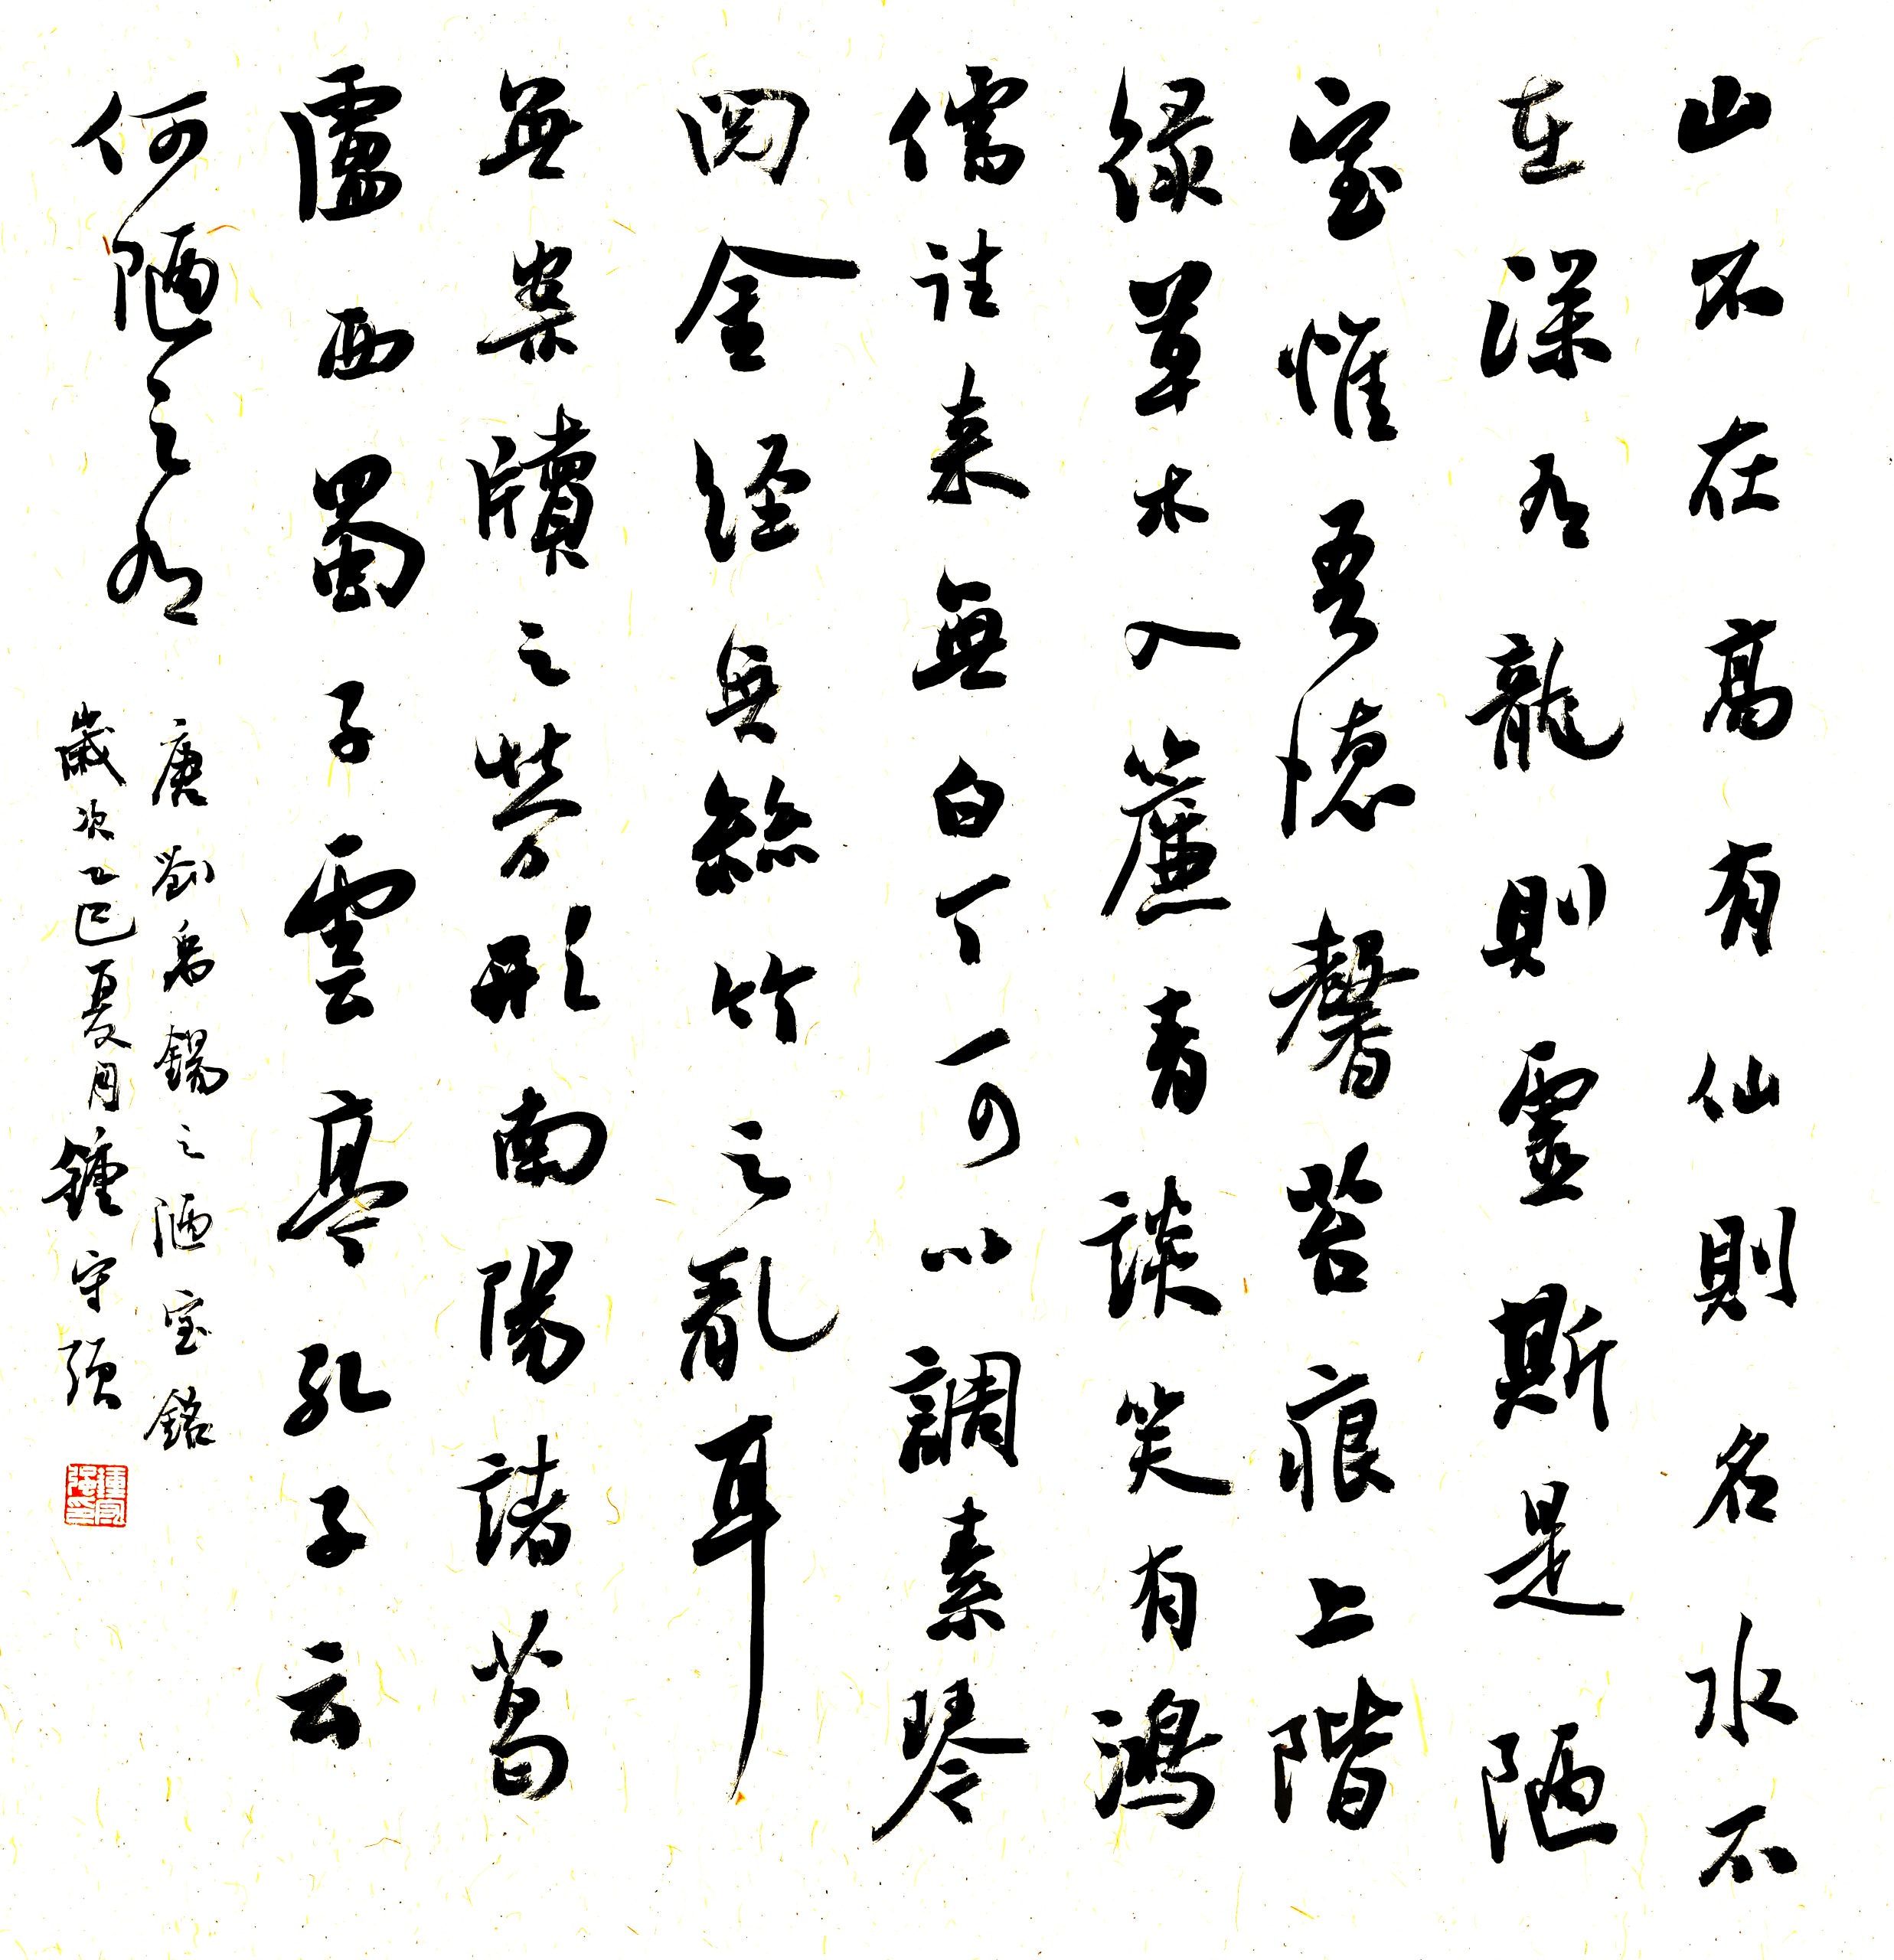 山不在高有仙則名水不
在深有龍則靈斯是陋
室惟吾德馨苔痕上階
緑草木入簾青談笑有鴻
儒往来無白丁可以調素琴
閱金経無絲竹之亂耳
無案牘之勞形南陽諸葛
廬西蜀子雲亭孔子云
何陋之有
唐劉禹錫之陋室銘
歲次乙巳夏月鍾守强
鍾守强印